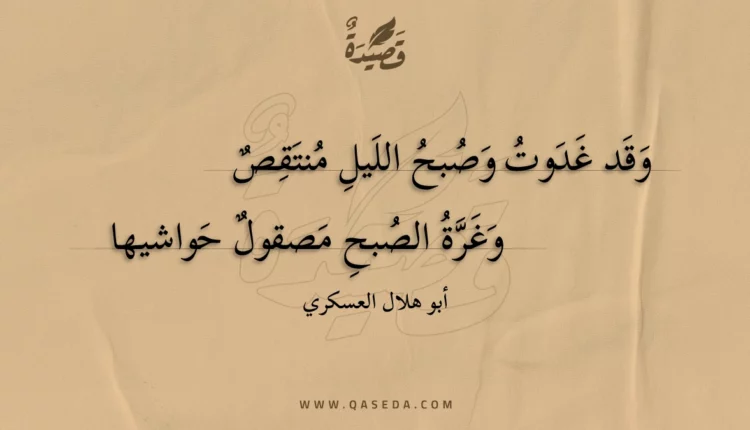 قَصِيْدَةٌ
وَقَد غَدَوتُ وَصُبحُ اللَيلِ مُنتَقِصٌ
وَغَرَّةُ الصُبحِ مَصقولٌ حَواشيها
أبو هلال العسكري
WWW.QASEDA.COM